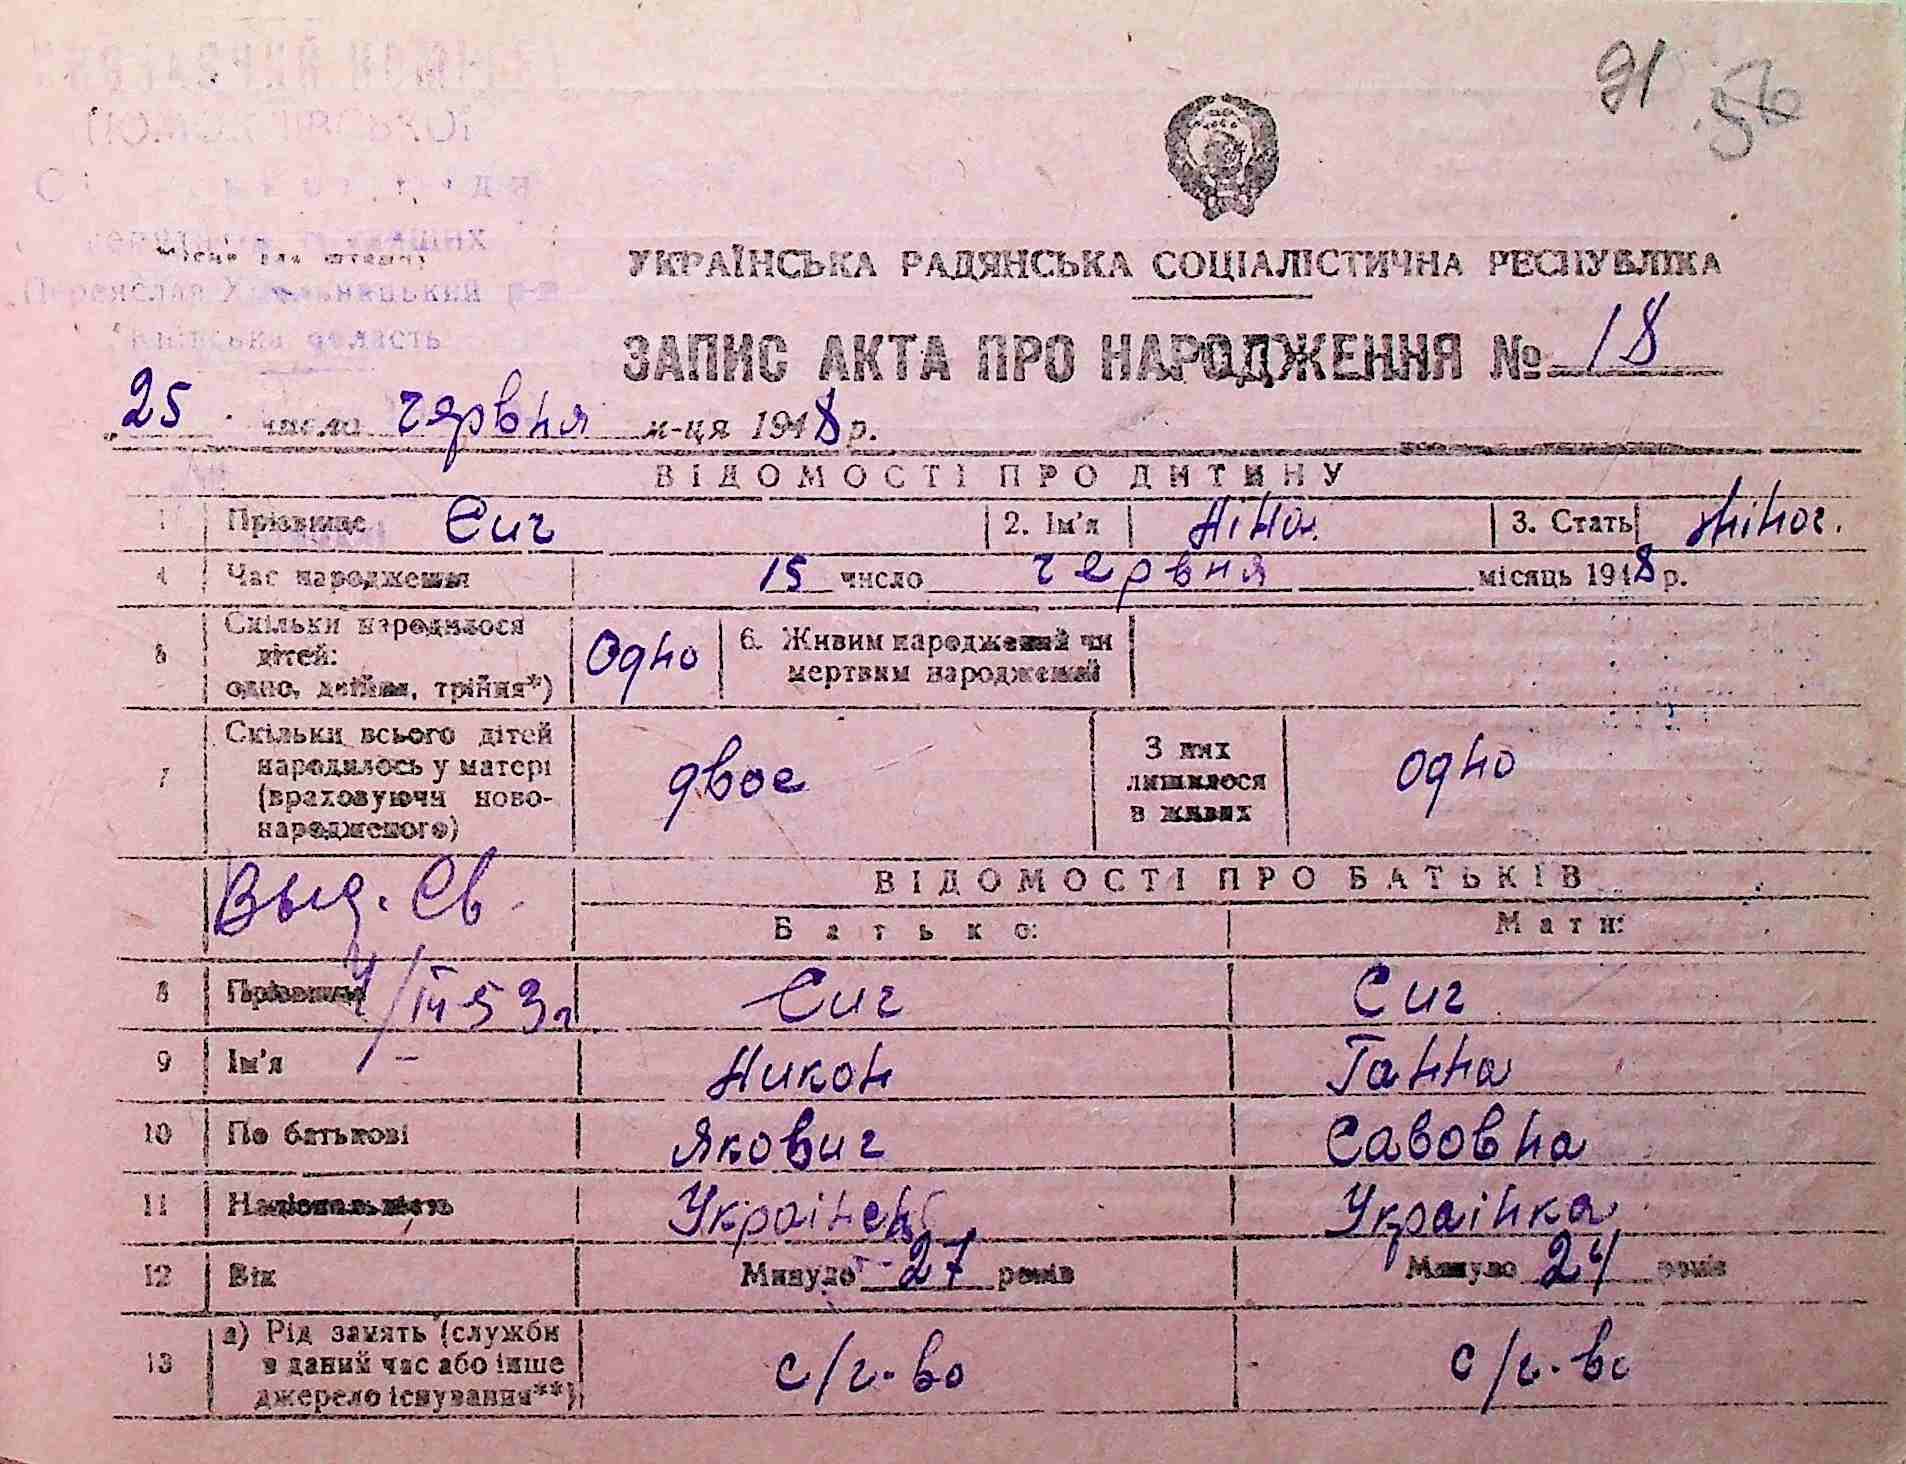 91 56
УКРАЇНСЬКА РАДЯНСЬКА СОЦІАЛІСТИЧНА РЕСПУБЛІКА
Переяслав Хмельницький р-н
Київська область
ЗАПИС АКТА ПРО НАРОДЖЕННЯ № 18
„25 числа червня м-ця 1948 р.
ВІДОМОСТІ ПРО ДИТИНУ
1 Прізвище Сич 2. Ім'я Ніна 3. Стать жіноч.
4 Час народження 15 число червня місяць 1948 р.
5 Скільки народилося дітей: одно, двійня, трійня*) Одно 6. Живим народжений чи мертвим народжений
7 Скільки всього дітей народилось у матері (враховуючи новонародженого) двое З них лишилося в живих одно
Выд. Св.
ВІДОМОСТІ ПРО БАТЬКІВ
Батько: Мати:
8 Прізвище Сич Сич
9 Ім'я Никон Ганна
10 По батькові Якович Савовна
11 Національність Українец Українка
12 Вік Минуло 27 років Минуло 24 років
13 а) Рід занять (служби в даний час або інше джерело існування**) с/г-во с/г-во